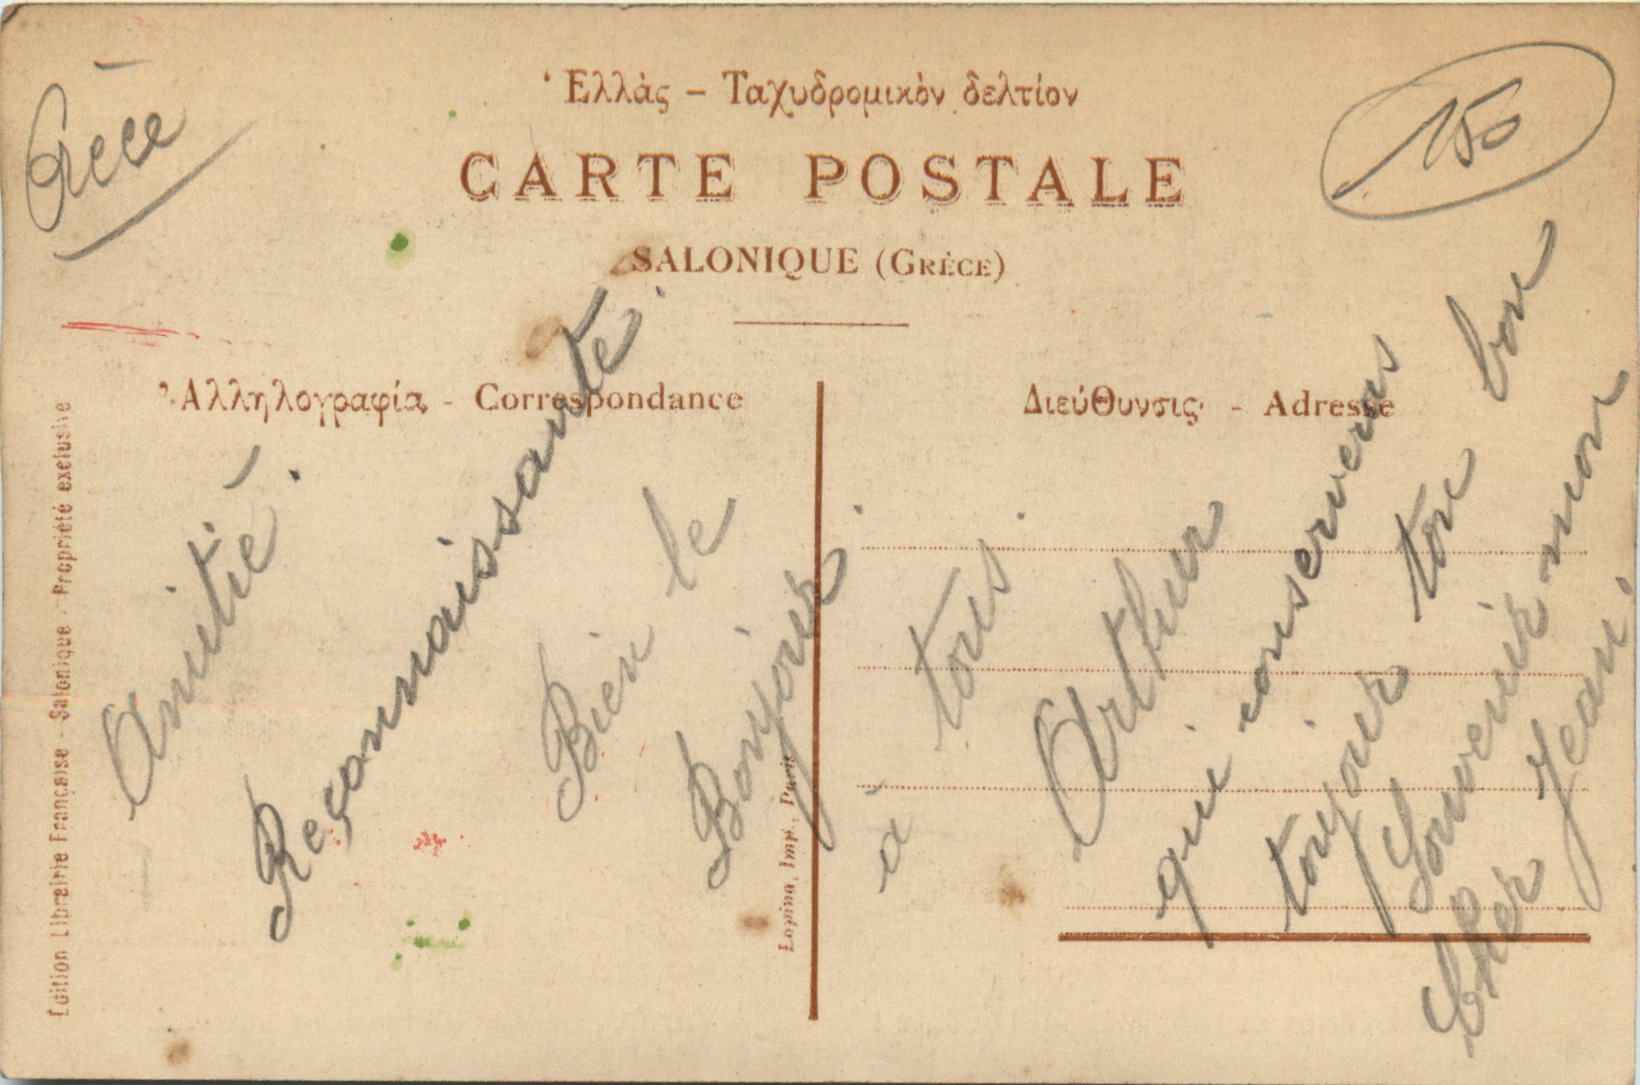 Grèce
150
Ἑλλὰς – Ταχυδρομικὸν δελτίον
CARTE POSTALE
SALONIQUE (GRÈCE)
Ἀλληλογραφία - Correspondance
Διεύθυνσις - Adresse
Édition Librairie Française - Salonique - Propriété exclusive
Lopina, Imp., Paris
Amitié.
Reconnaissante.
Bien le
Bonjour.
à tous.
Arthur
qui conserveras
toujour ton bon
Souvenir mon
Cher Jean.